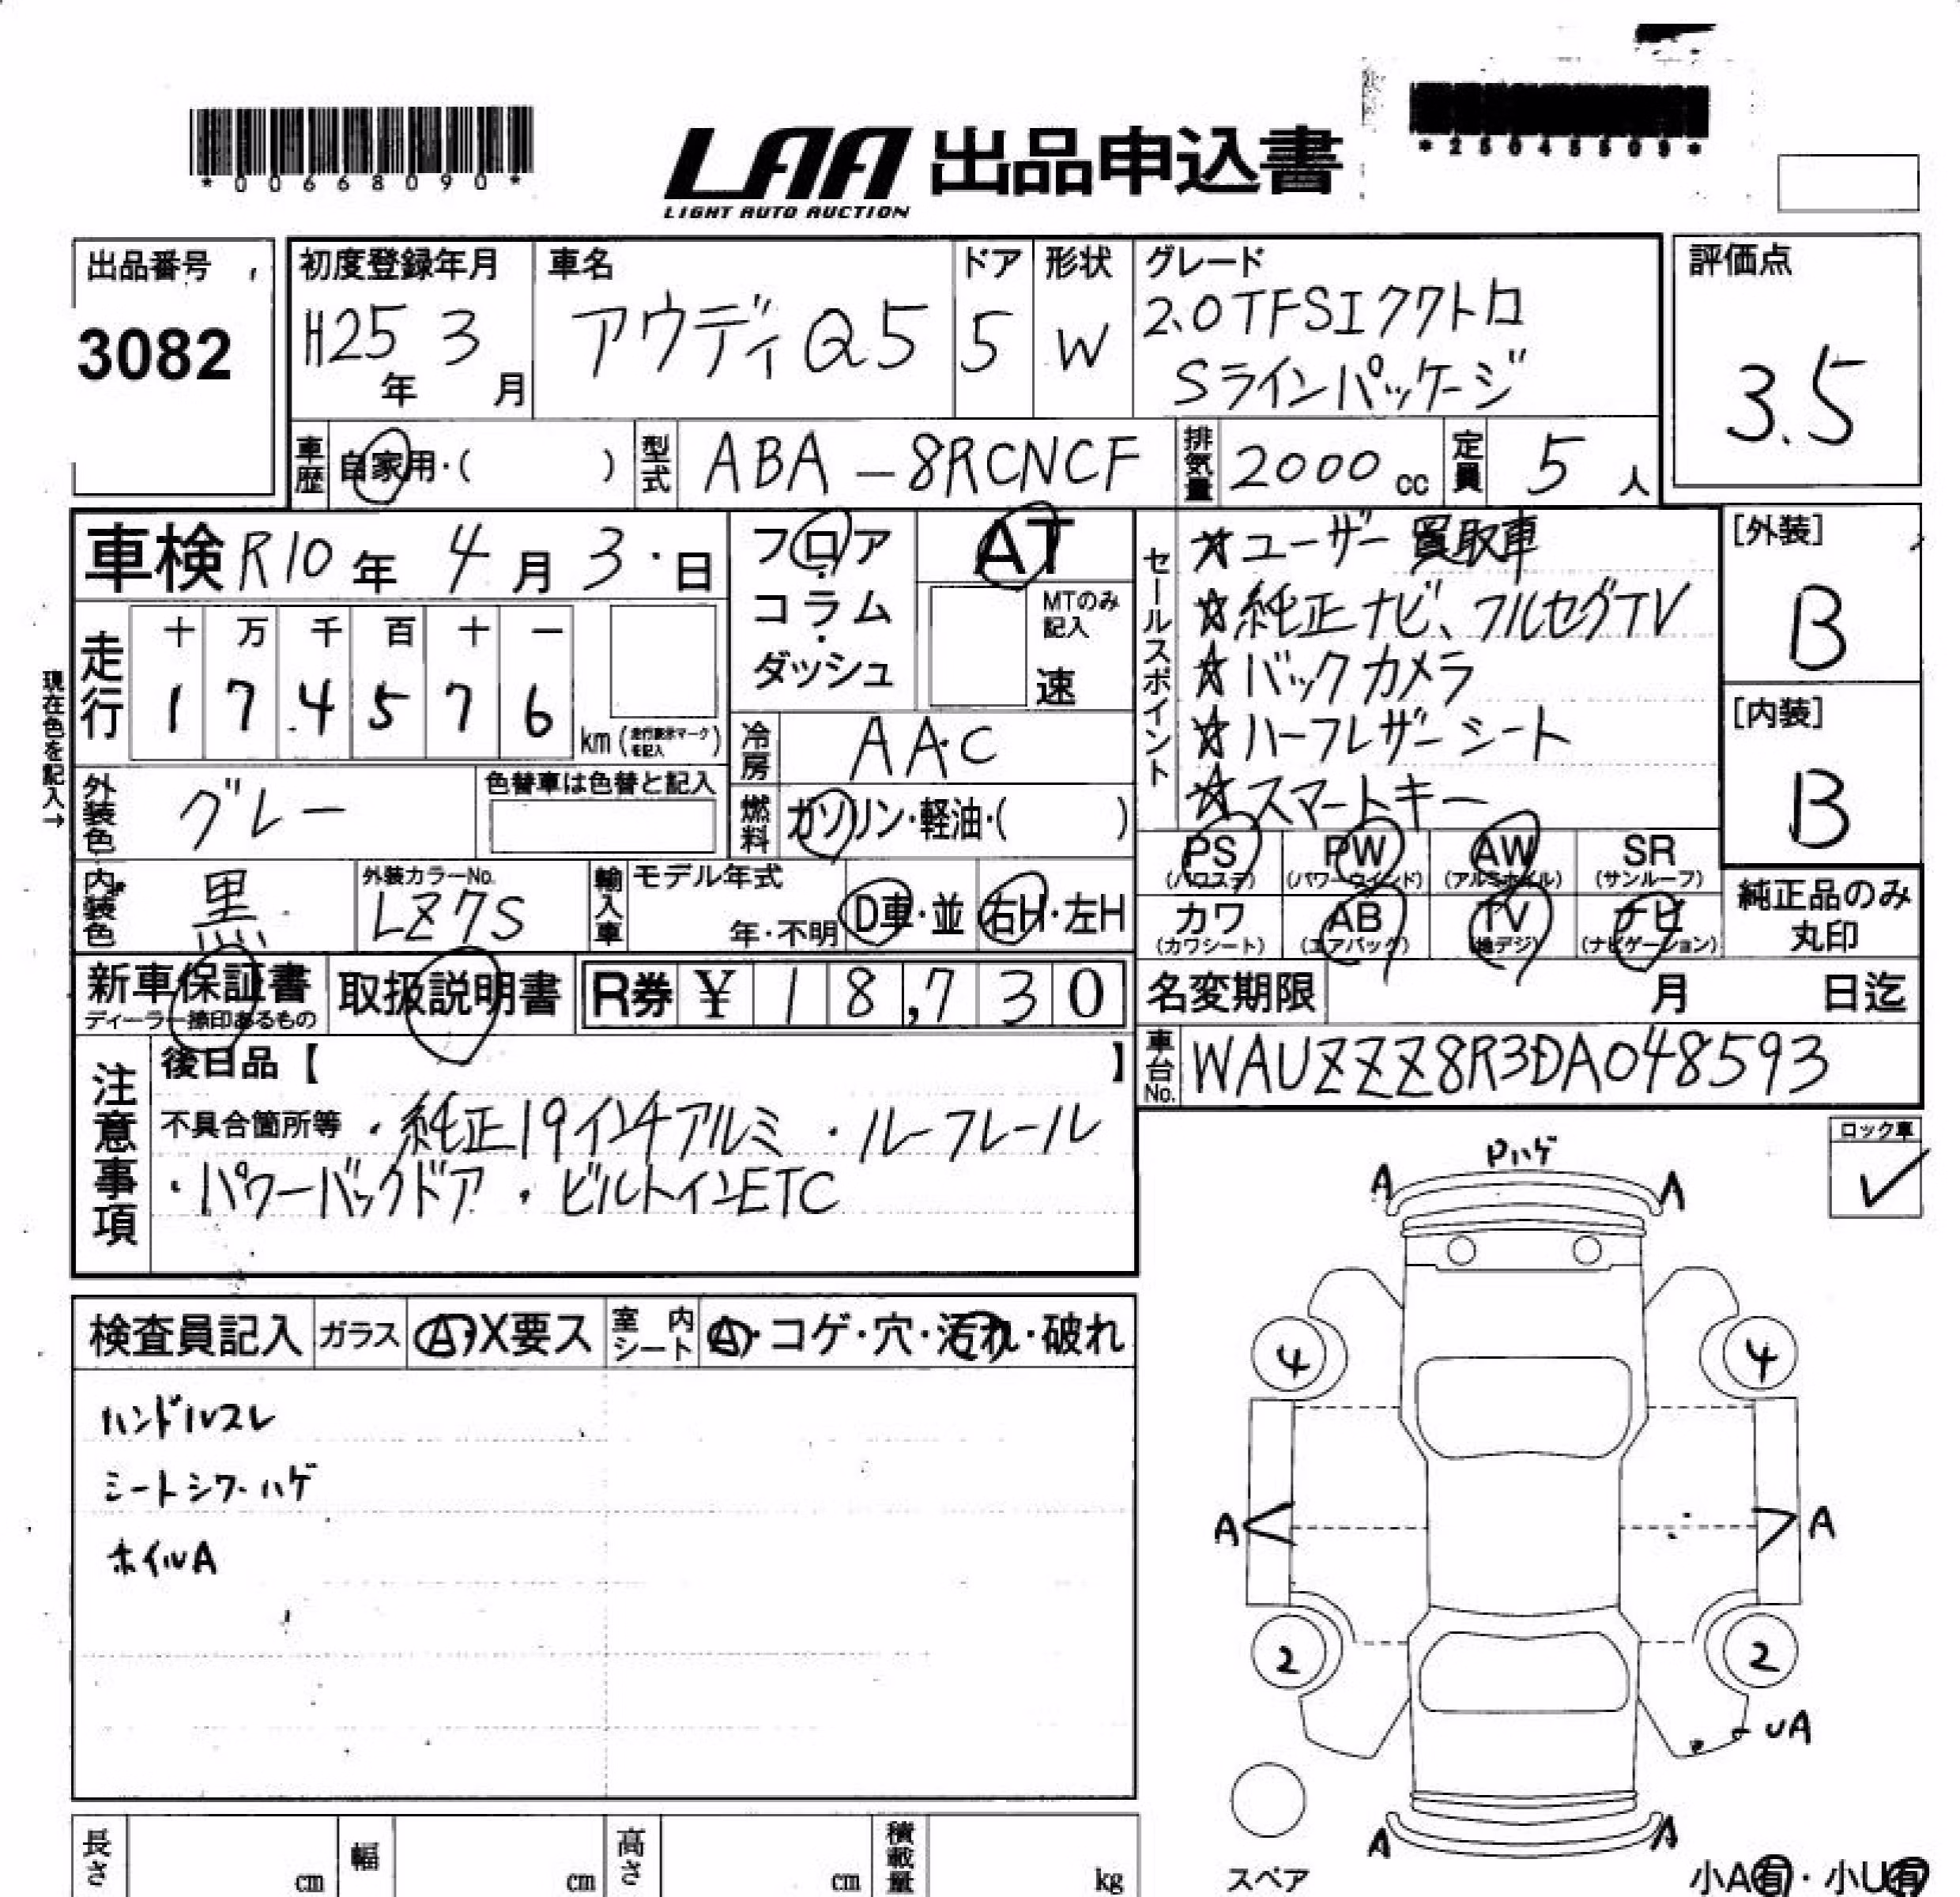 *00668090*
LAA 出品申込書
LIGHT AUTO AUCTION
*25045503*
出品番号
3082
初度登録年月
H25年 3月
車名
アウディQ5
ドア
5
形状
W
グレード
2.0TFSIクワトロ
Sラインパッケージ
評価点
3.5
車歴 自家用・( )
型式 ABA-8RCNCF
排気量 2000cc
定員 5人
車検 R10年 4月 3日
フロア・コラム・ダッシュ
AT
MTのみ記入
速
セールスポイント
☆ユーザー買取車
☆純正ナビ、フルセグTV
☆バックカメラ
☆ハーフレザーシート
☆スマートキー
[外装]
B
[内装]
B
現在色を記入→
走行
十 万 千 百 十 一
1 7 4 5 7 6
km(走行表示マークを記入)
冷房 AAC
外装色 グレー
色替車は色替と記入
燃料 ガソリン・軽油・( )
内装色 黒
外装カラーNo.
LZ7S
輸入車
モデル年式
年・不明
D車・並
右H・左H
PS (パワステ)
PW (パワーウインド)
AW (アルミホイル)
SR (サンルーフ)
カワ (カワシート)
AB (エアバック)
TV (地デジ)
ナビ (ナビゲーション)
純正品のみ丸印
新車保証書
ディーラー捺印あるもの
取扱説明書
R券 ¥ 18,730
名変期限 月 日迄
車台No. WAUZZZ8R3DA048593
注意事項
後日品【 】
不具合箇所等 ・純正19インチアルミ ・ルーフレール
・パワーバックドア ・ビルトインETC
ロック車
✓
検査員記入
ガラス A・X要ス
室内シート A・コゲ・穴・汚れ・破れ
ハンドルスレ
シートシワ・ハゲ
ホイルA
Pハゲ
A A
4 4
A A
2 2
UA
A A
スペア
小A有・小U有
長さ cm
幅 cm
高さ cm
積載量 kg